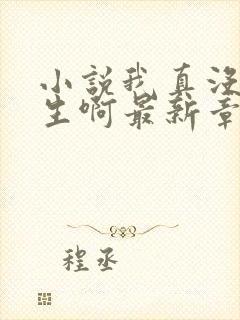 小説我真没
生啊最新章
程丞